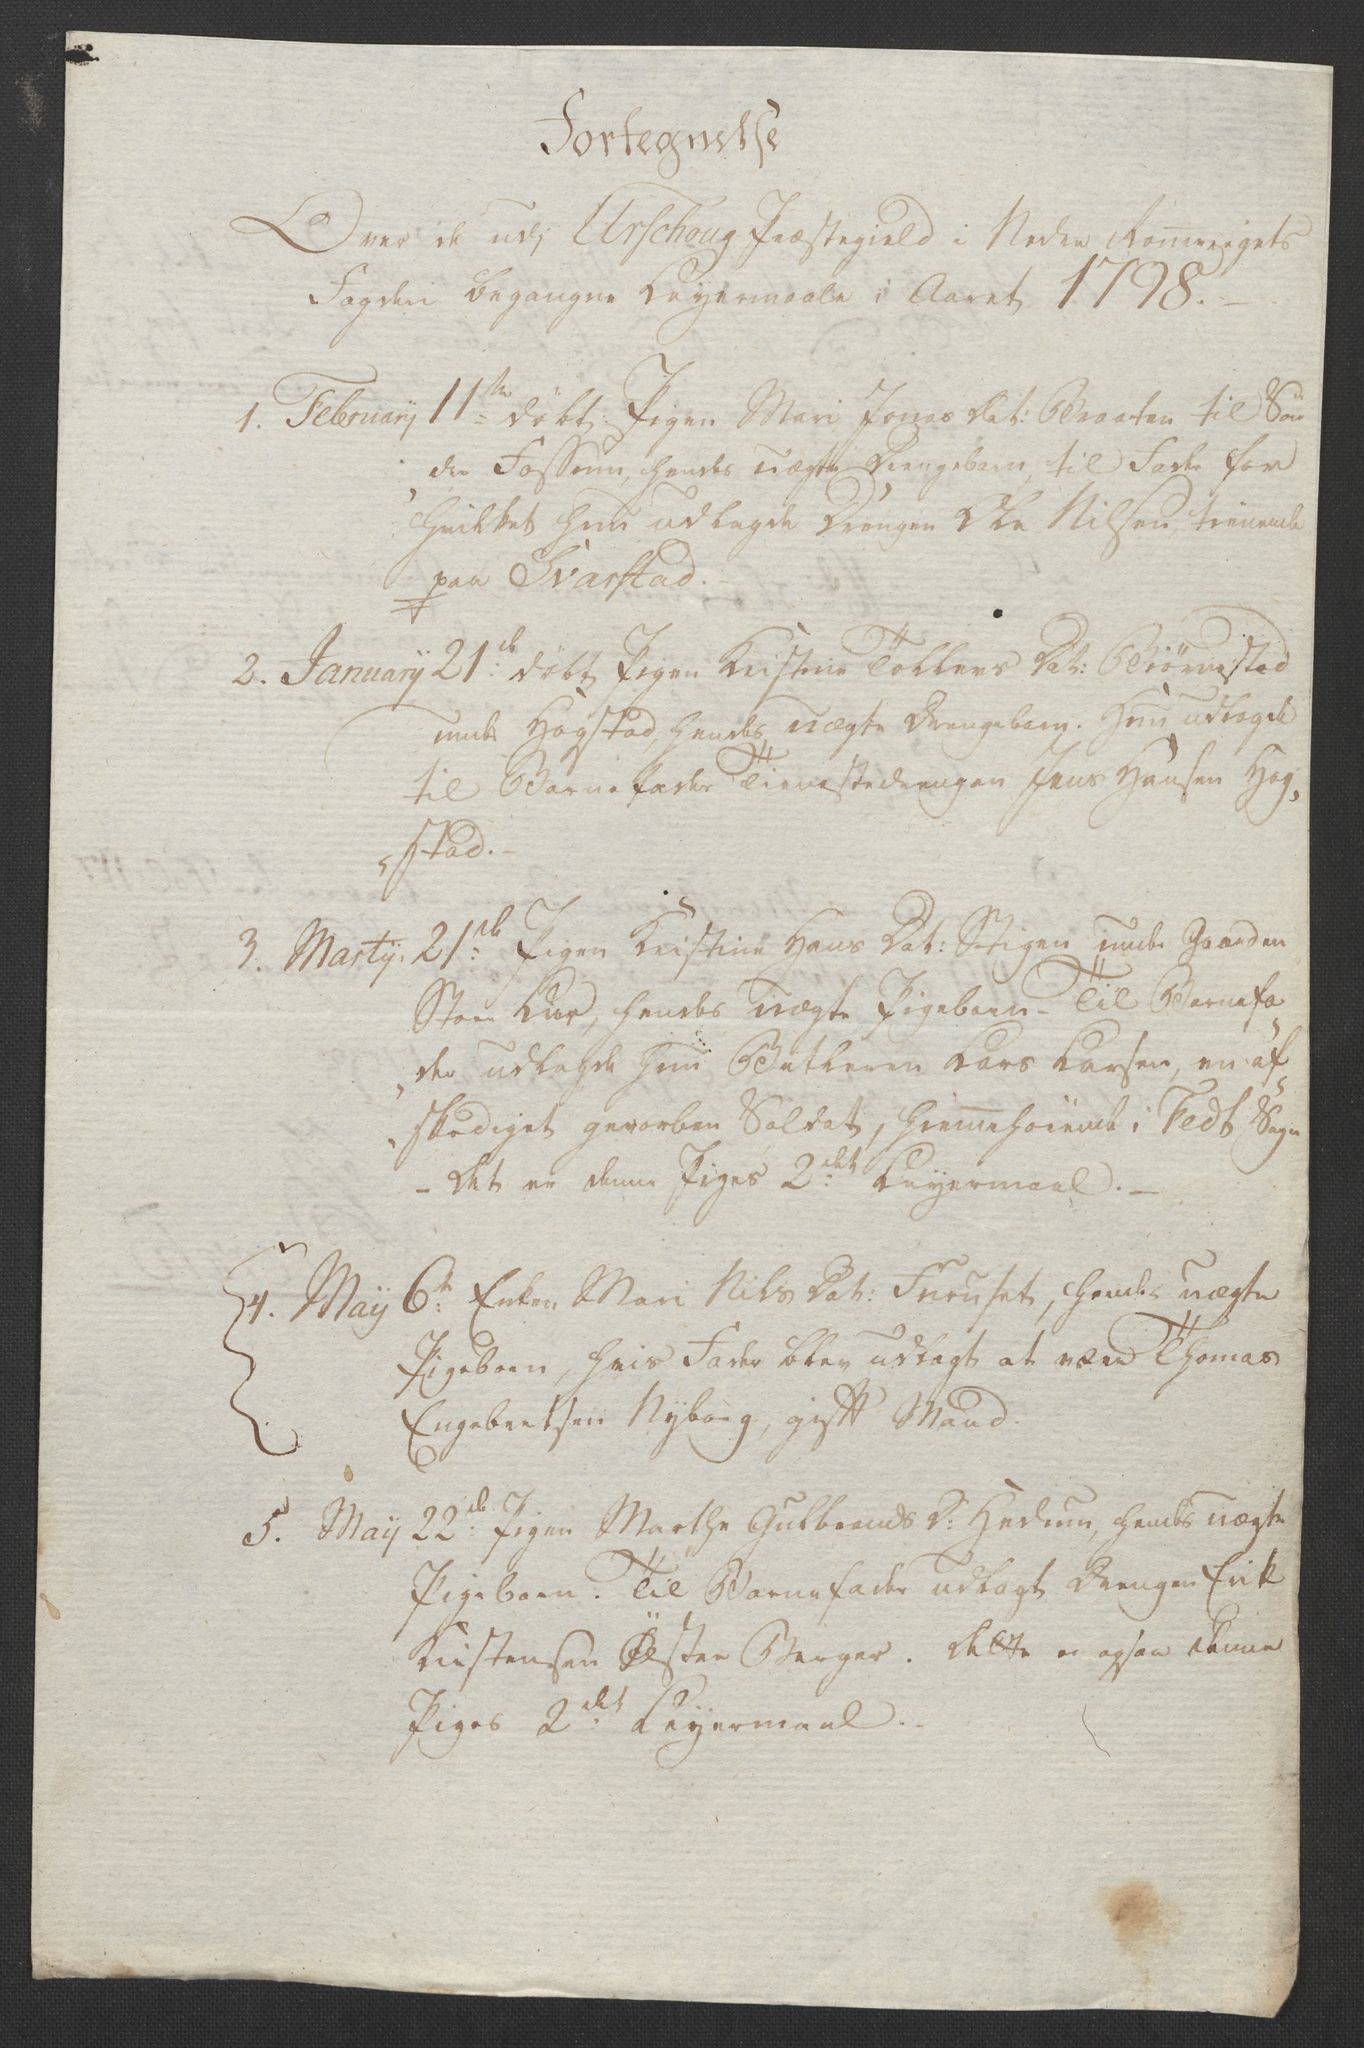 Fortegnelse
Over de udj Urschoug Præstegield i Neder Romerigets
Fogderi begangne Leyermaale i Aaret 1798.-
1. Februarij 11te døbt Pigen Mari Jonas Dat: Braaten til Søn
der Fossum, hendes uægte Drengebarn, til Fader for
hvilket hun udlagde Drengen Ole Nilsen, tienende
paa Svarstad.
2. Januarij 21de døbt Pigen Kristine Tollevs Dat: Biørnestad
unde Høgstad, hendes uægte Drengebarn. Hun udlagde
til Barnefader Tienestedrengen Jens Hansen Høg,
stad.-
3. Martij 21de Pigen Kristine Hans Dat: Stigen unde Gaarden
Store Kur, hendes uægte Pigebarn - Til Barnefa
der udlagde hun Lars Larsen, en af
skediget gevorben Soldat, hiemmehørende i Fedt Sogn
- Det er denne Piges 2det Leyermaal.-
4. Maij 6te Enken Mari Nils Dat: Furuset, hendes uægte
Pigebarn, hvis Fader blev udlagt at være Thomas
Engebretsen Nyborg, gift Mand.
5. Maij 22de Pigen Marthe Gulbrands D: Hedum, hendes uægte
Pigebarn. Til Barnefader udlagt Drengen Erik
Kristensen Øster Berger. Dette er ogsaa denne
Piges 2det Leyermaal.-